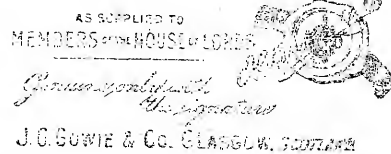 AS SUPPLIED TO
MEMBERS OF THE HOUSE OF LORDS
Genuine only with
the signature
J. G. GOWIE & Co. GLASGOW, SCOTLAND